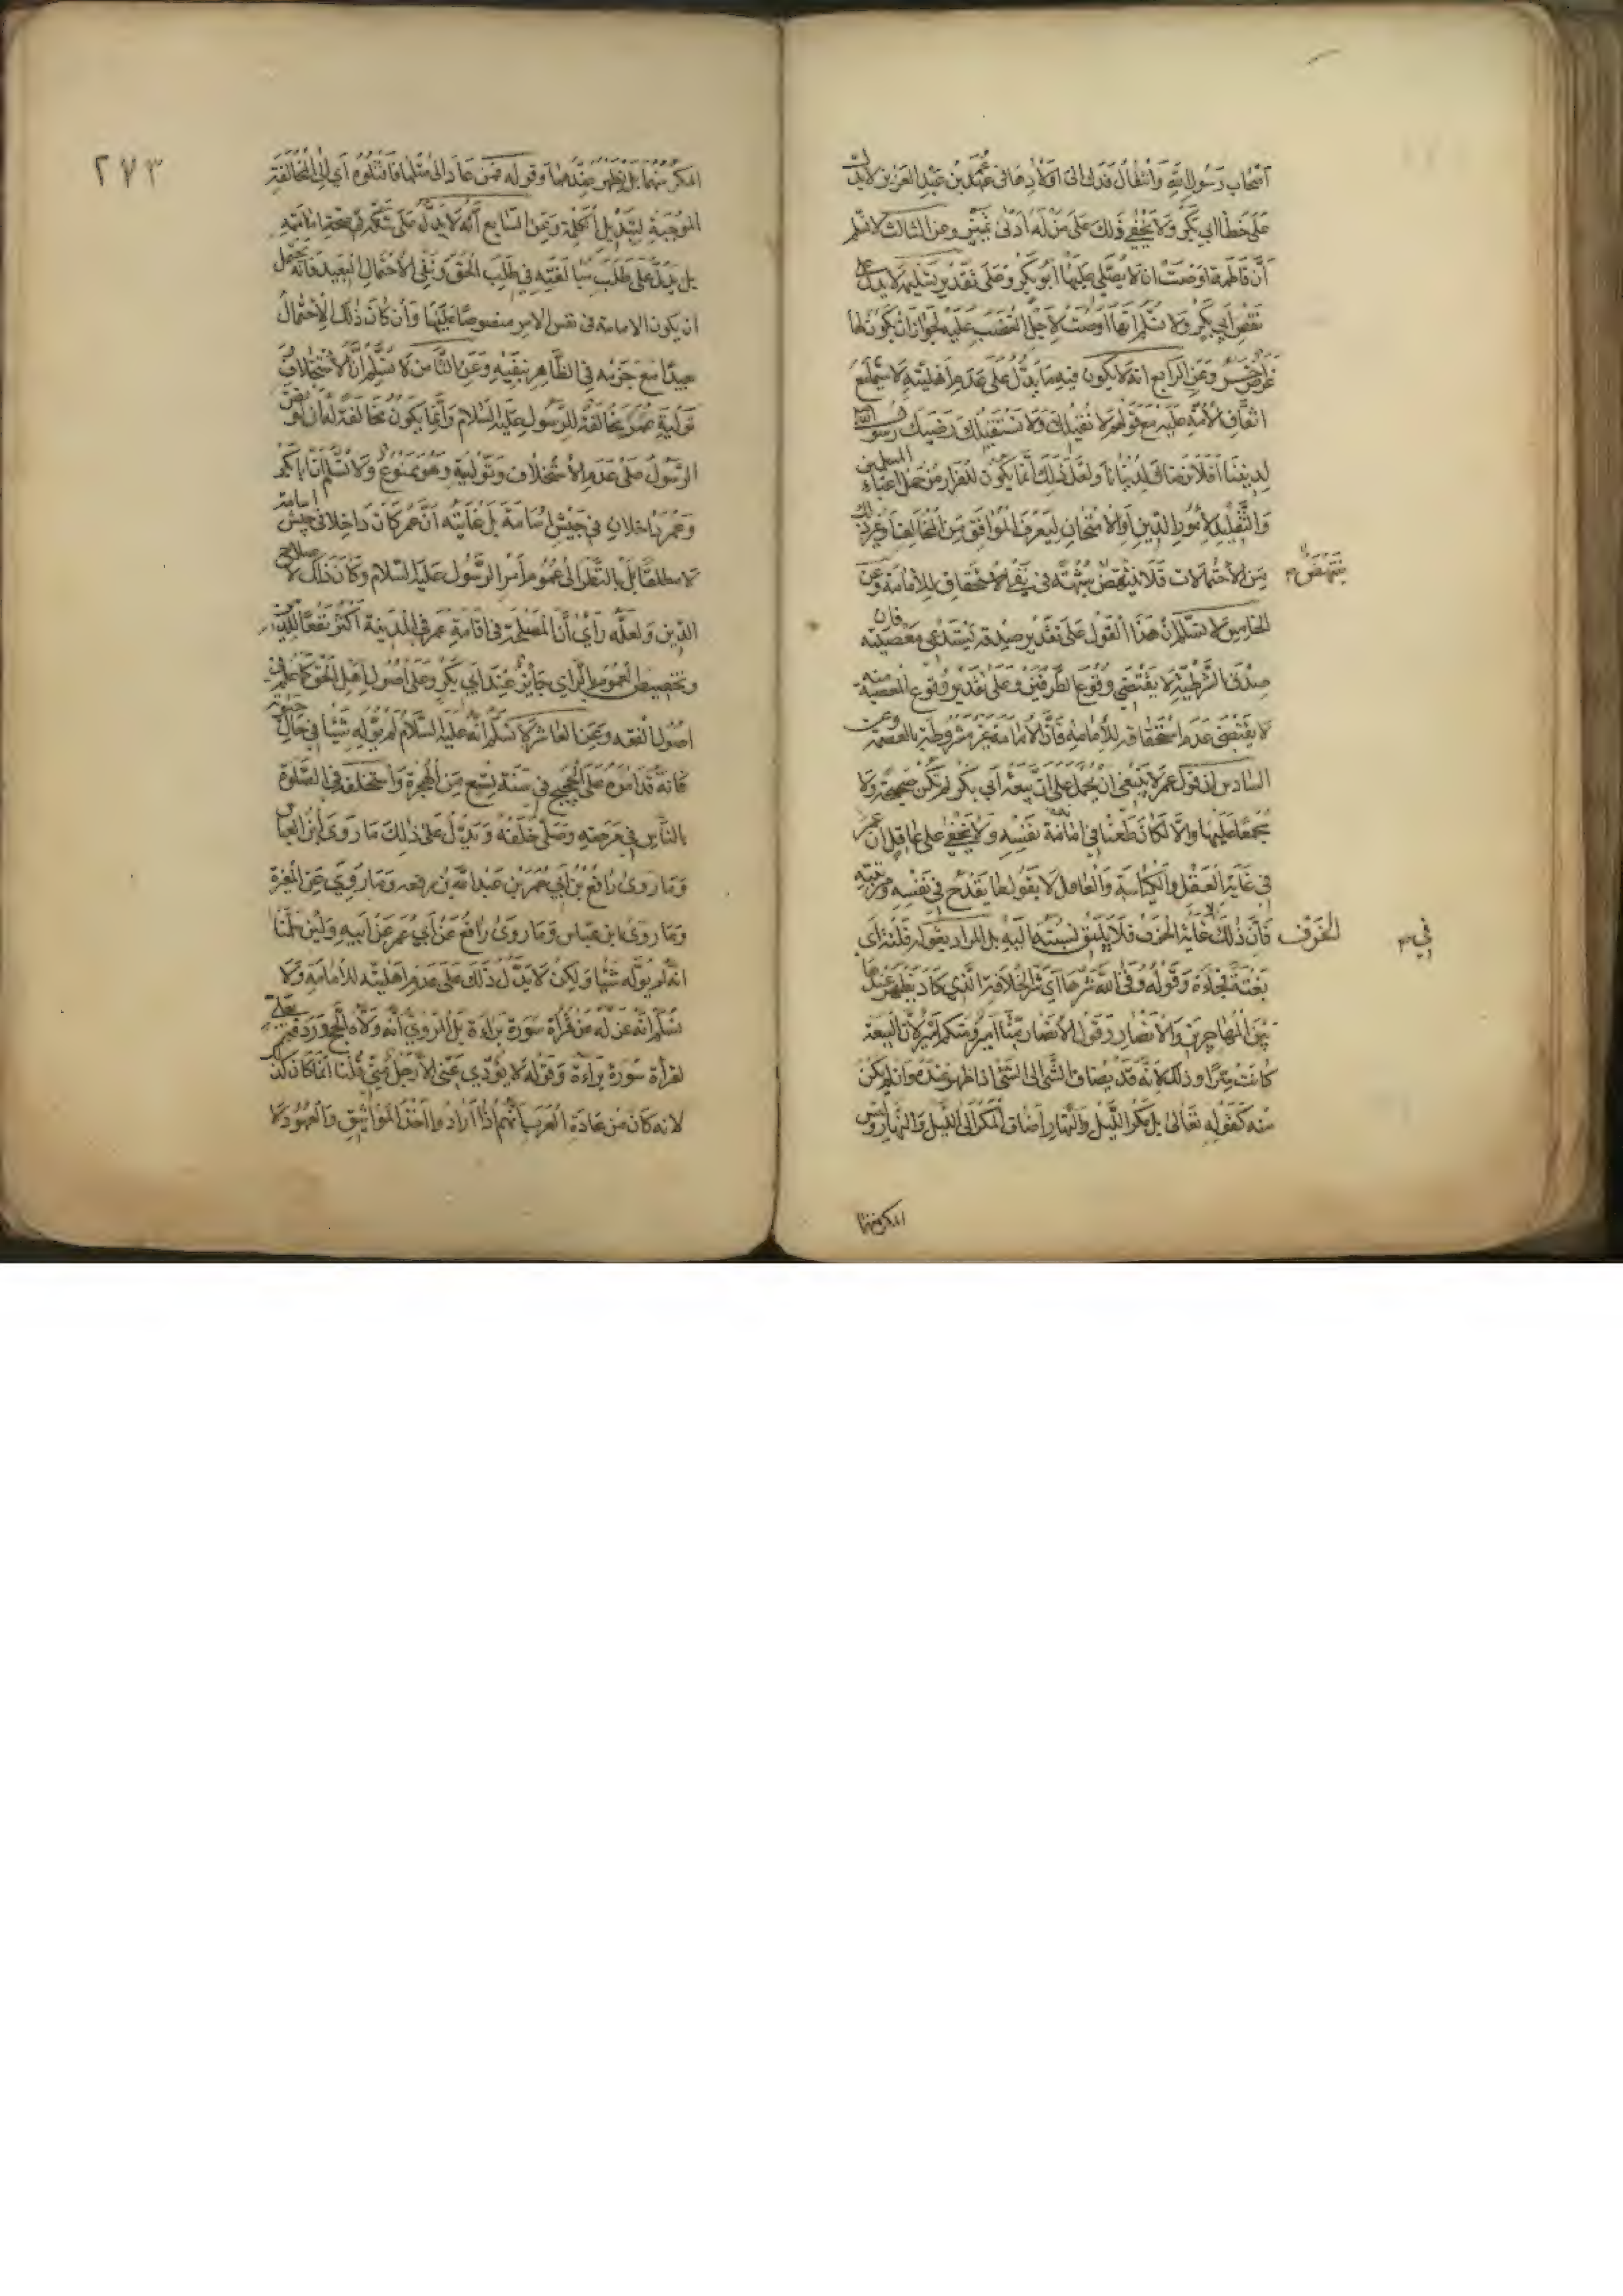 أصحاب رسول الله وانتقال فدك الى اولادها فى عهد عمر بن عبد العزيز لا يدل
على خطأ أبي بكر ولا يخفى ذلك على من له أدنى تمييز وعن الثالث لا نسلم
أن فاطمة اوصت ان لا يصلي عليها أبو بكر وعلى تقدير تسليمه لا يدل على
نقص أبي بكر ولا نسلم انها اوصت لاجل الغضب عليه لجواز ان يكون لها
غرض آخر وعن الرابع انه لا يكون فيه ما يدل على عدم أهليته لا سيما مع
اتفاق الأمة عليه مع قولهم لا نقيلك ولا نستقيلك رضيك رسول الله
لديننا أفلا نرضاك لدنيانا ولعل ذلك انما يكون للفرار من حمل اعباء المسلمين
والتقليد لأمور الدين أو الامتحان ليعرف الموافق من المخالف أو غير ذلك
من الاحتمالات فلا ينتهض شبهة في نفي الاستحقاق للامامة وعن
ينتهض م
الخامس لا نسلم ان هذا القول على تقدير صدقه يستدعى معصيته فان
صدق الشرطية لا يقتضي وقوع الطرفين وعلى تقدير وقوع المعصية منه
لا يقتضى عدم استحقاقه للأمامة فان الامامة غير مشروطة بالعصمة وعن
السادس ان قول عمر لا ينبغى ان يحمل على ان بيعة أبي بكر لم تكن صحيحة ولا
مجمعا عليها والا لكان طعنا في امامة نفسه ولا يخفى على عاقل ان عمر
فى غاية العقل والكياسة والعاقل لا يقول ما يقدح فى نفسه ومرتبته
فان ذلك غاية الخرف فلا يليق نسبته اليه بل المراد بقوله فلتة أي
الخرف
في م
بغتة فجاءة وقوله وقى الله شرها أي شر الخلاف الذي كاد يظهر عندها
بين المهاجرين والانصار وقول الانصار منا أمير ومنكم أمير لا ان البيعة
كانت شرا وذلك لأنه قد يضاف الشئ الى الشئ اذا ظهر عنده وان لم يكن
منه كقوله تعالى بل مكر الليل والنهار أضاف المكر الى الليل والنهار وليس
المكر منهما
٢٧٣
المكر منهما بل يظهر عندهما وقوله فمن عاد الى مثلها فاقتلوه أي الى المخالفة
الموجبة لتبديل الكلمة وعن السابع أنه لا يدل على شكه في صحة امامته
بل يدل على طلب مبالغته في طلب الحق ونفي الاحتمال البعيد فانه يحتمل
ان يكون الامامة فى نفس الامر منصوصا عليها وان كان ذلك الاحتمال
بعيدا مع جزمه في الظاهر بنفيه وعن الثامن لا نسلم ان الاستخلاف
تولية عمر مخالفة للرسول عليه السلام وانما يكون مخالفة له ان لو نص
الرسول على عدم الاستخلاف وتوليته وهو ممنوع ولا نسلم ان ابا بكر
وعمر داخلان في جيش اسامة بل غايته أن عمر كان داخلا في جيش اسامة
لا مطلقا بل بالنظر الى عموم أمر الرسول عليه السلام وكان ذلك لاصلاح
الدين ولعله رأى ان المصلحة فى اقامة عمر في المدينة أكثر نفعا للدين
وتخصيص العموم بالراي جايز عند أبي بكر وعلى اصول اهل الحق كما علم فى
اصول الفقه وعن العاشر لا نسلم انه عليه السلام لم يوله شيئا في حال حيوته
فانه قد امره على الحجيج في سنة تسع من الهجرة واستخلفه في الصلوة
بالناس في مرضه وصلى خلفه ويدل على ذلك ما روى ابن العباس
وما روى رافع بن أبي عمر بن عبد الله بن وما روي عن المغيرة
وما روى ابن عباس وما روى رافع عن أبي عمر عن أبيه ولئن سلمنا
انه لم يوله شيئا ولكن لا يدل ذلك على عدم اهليته للأمامة ولا
نسلم انه عزله من قرأة سورة براءة بل المروي أنه ولاه الحج وردفه بعلي
لقرأة سورة براءة وقوله لا يؤدي عني الا رجل مني قلنا انما كان كذلك
لانه كان من عادة العرب انهم اذا ارادوا اخذ المواثيق والعهود لا